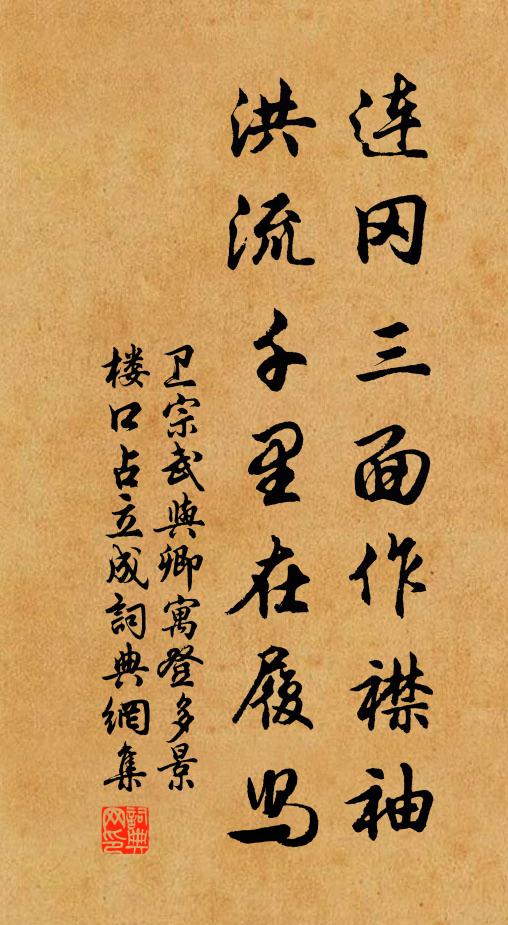 连冈三面作襟袖
洪流千里在履舄
卫宗武与卿寓登多景
楼口占立成詞典網集
詞典网印